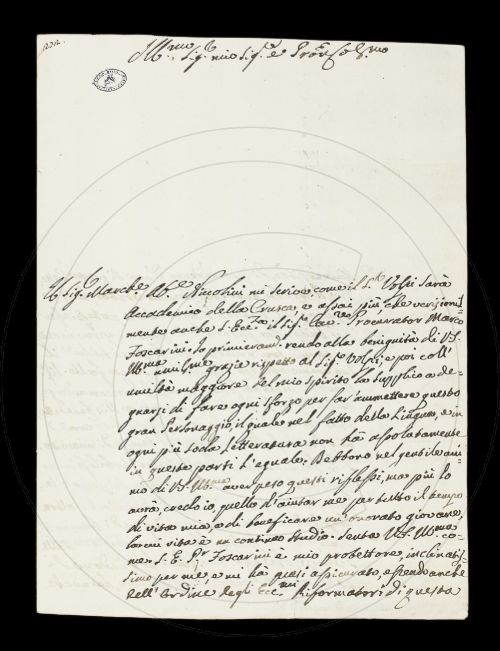 Ill.mo Sig.r mio Sig.r e Pron Col.mo
Il Sig.r Marche. Ab.e Nicolini mi scrive, come il S.r Volpi sarà
Accademico della Crusca, e assai più che verisimil=
mente anche S. Ecc.za il Sig.r Cav.re Procurator Marco
Foscarini. Io primieram. rendo alla benignità di V.S.
Ill.ma umil.me grazie rispetto al Sig.r Volpi; e poi coll'
umiltà maggiore del mio spirito la supplico a de=
gnarsi di fare ogni sforzo per far ammettere questo
gran Personaggio, il quale nel fatto della Lingua, e in
ogni più soda Letteratura non ha assolutamente
in queste parti l'eguale. Debbono nel gentile ani=
mo di V.S. Ill.ma aver peso questi riflessi, ma più lo
avrà, credo io, quello d'aiutar me per tutto il tempo
di vita mia, e di beneficare un onorato giovane,
la cui vita è un continuo studio. Senta V.S. Ill.ma co=
me. S. E. Pr. Foscarini è mio protettore, inclinatis=
simo per me, e mi ha quasi assicurato, essendo anche
dell'Ordine degli Ecc.mi Riformatori di questa